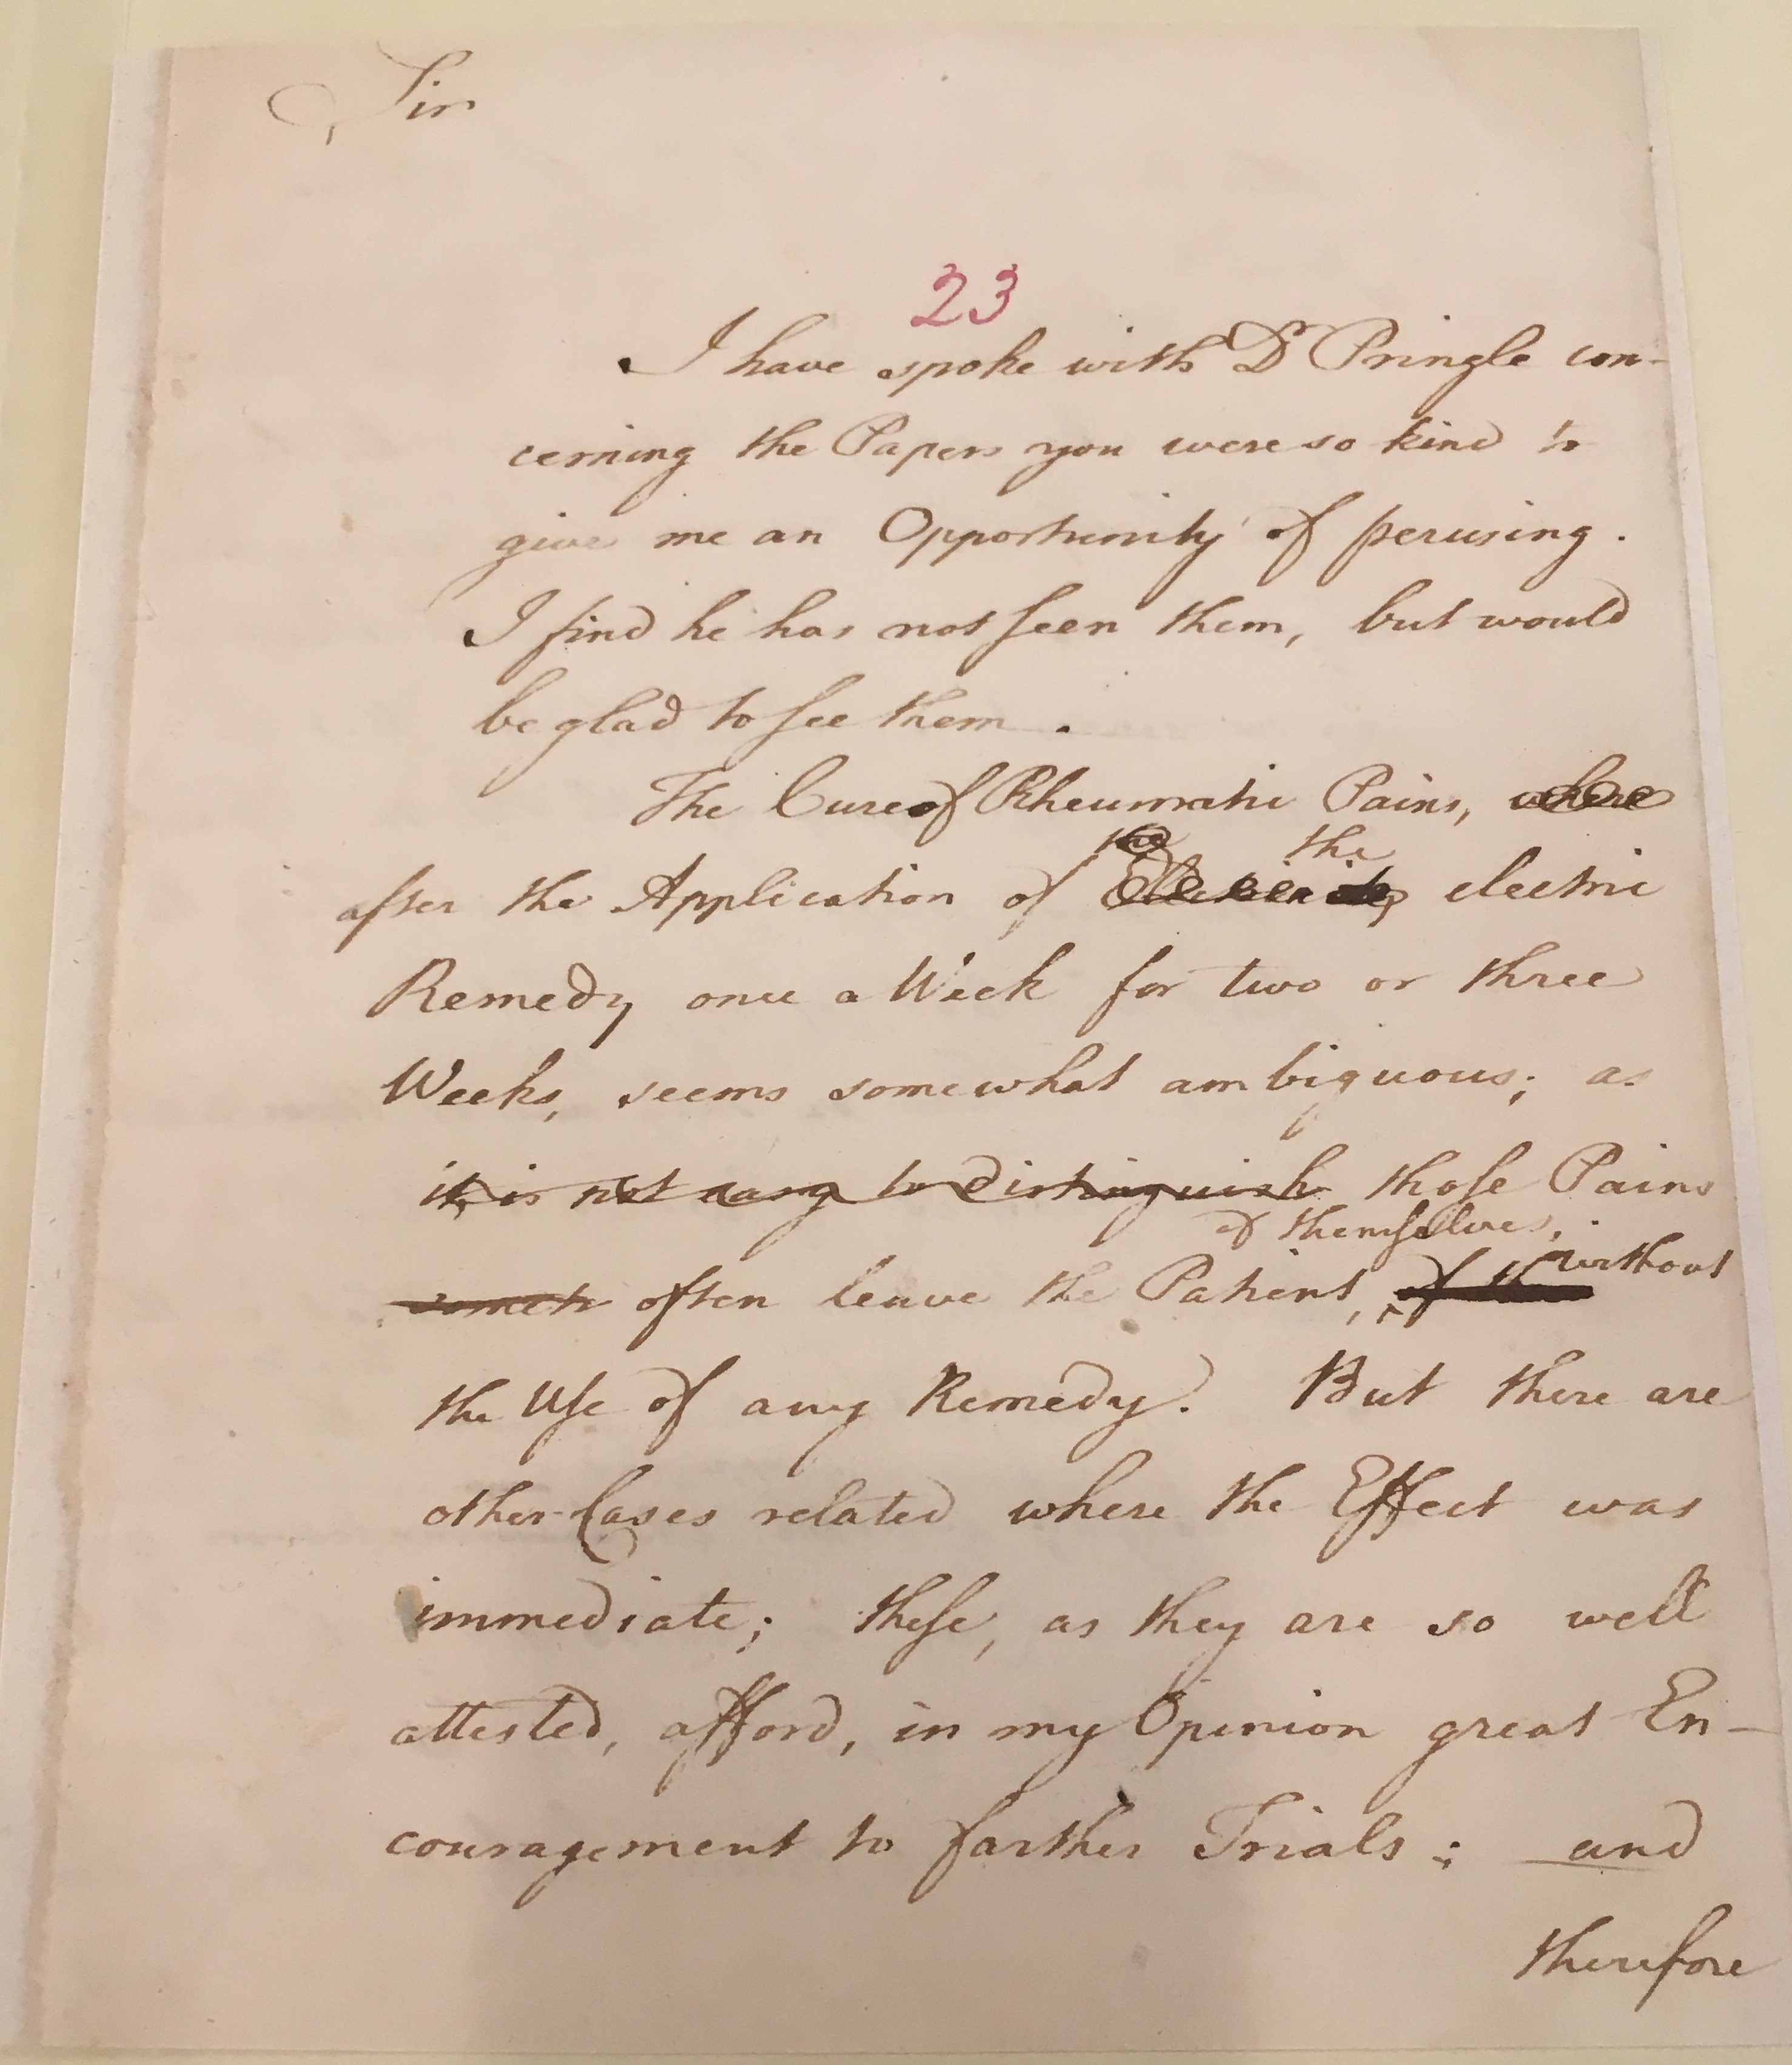 Sir
23
I have spoke with Dr Pringle con-
cerning the Papers you were so kind to
give me an Opportunity of perusing.
I find he has not seen them, but would
be glad to see them.
The Cure of Rheumatic Pains, where
the the
after the Application of Electricity electric
Remedy once a Week for two or three
Weeks, seems somewhat ambiguous; as
it is not easy to distinguish those Pains
of themselves,
often leave the Patient, of them without
the Use of any Remedy. But there are
other Cases related where the Effect was
immediate; these, as they are so well
attested, afford, in my Opinion great En-
couragement to farther Trials; and
therefore